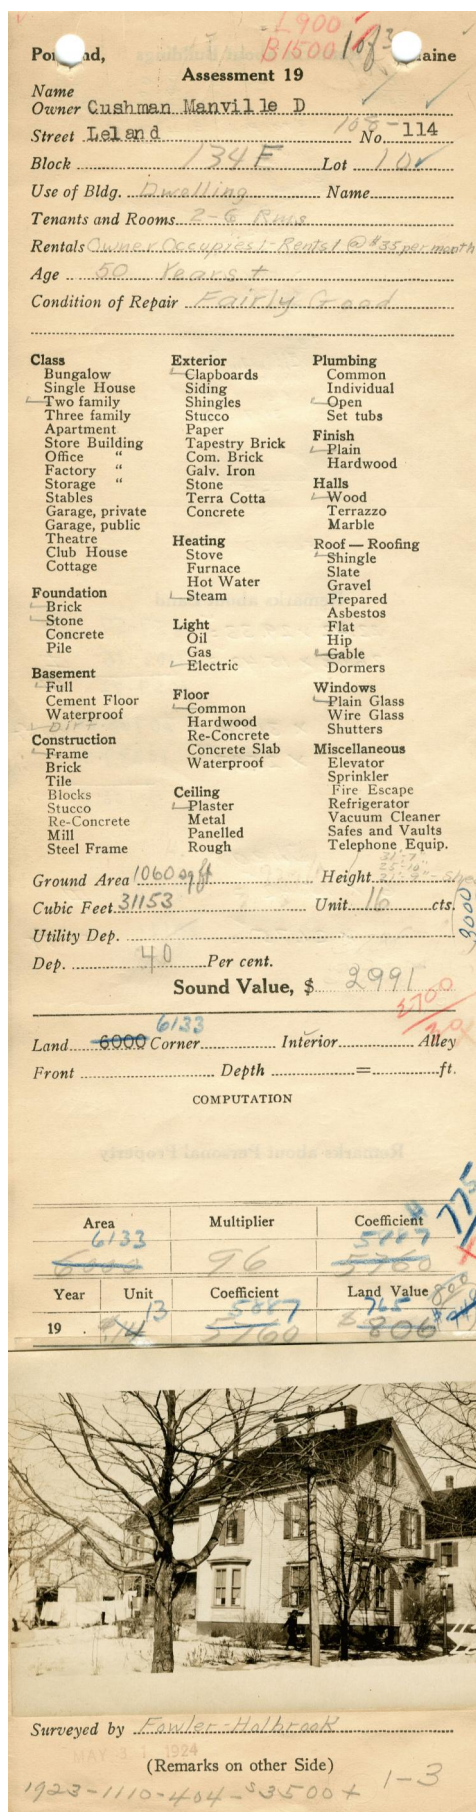 L900
B1500 1 of 3
Po nd, aine
Assessment 19
Name
Owner Cushman Manville D
108-
Street Leland No. 114
Block 134 F Lot 10
Use of Bldg. Dwelling Name
Tenants and Rooms 2-6 Rms
Rentals Owner Occupies 1-Rental @ $35 per month
Age 50 Years +
Condition of Repair Fairly Good
Class
Bungalow
Single House
Two family
Three family
Apartment
Store Building
Office "
Factory "
Storage "
Stables
Garage, private
Garage, public
Theatre
Club House
Cottage
Foundation
Brick
Stone
Concrete
Pile
Basement
Full
Cement Floor
Waterproof
Dirt
Construction
Frame
Brick
Tile
Blocks
Stucco
Re-Concrete
Mill
Steel Frame
Exterior
Clapboards
Siding
Shingles
Stucco
Paper
Tapestry Brick
Com. Brick
Galv. Iron
Stone
Terra Cotta
Concrete
Heating
Stove
Furnace
Hot Water
Steam
Light
Oil
Gas
Electric
Floor
Common
Hardwood
Re-Concrete
Concrete Slab
Waterproof
Ceiling
Plaster
Metal
Panelled
Rough
Plumbing
Common
Individual
Open
Set tubs
Finish
Plain
Hardwood
Halls
Wood
Terrazzo
Marble
Roof — Roofing
Shingle
Slate
Gravel
Prepared
Asbestos
Flat
Hip
Gable
Dormers
Windows
Plain Glass
Wire Glass
Shutters
Miscellaneous
Elevator
Sprinkler
Fire Escape
Refrigerator
Vacuum Cleaner
Safes and Vaults
Telephone Equip.
Ground Area 1060 sq ft Height
Cubic Feet 31153 Unit 16 cts.
3000
Utility Dep.
Dep. 40 Per cent.
Sound Value, $ 2991
2700
6133
Land 6000 Corner Interior Alley
Front Depth = ft.
COMPUTATION
775
Area Multiplier Coefficient
6133 5887
6000 96 5760
Year Unit Coefficient Land Value
800
13 5887 765
19 . $14 5760 $ 806
Surveyed by Fowler-Holbrook
MAY 31 1924
(Remarks on other Side)
1923-1110-404-$3500+ 1-3